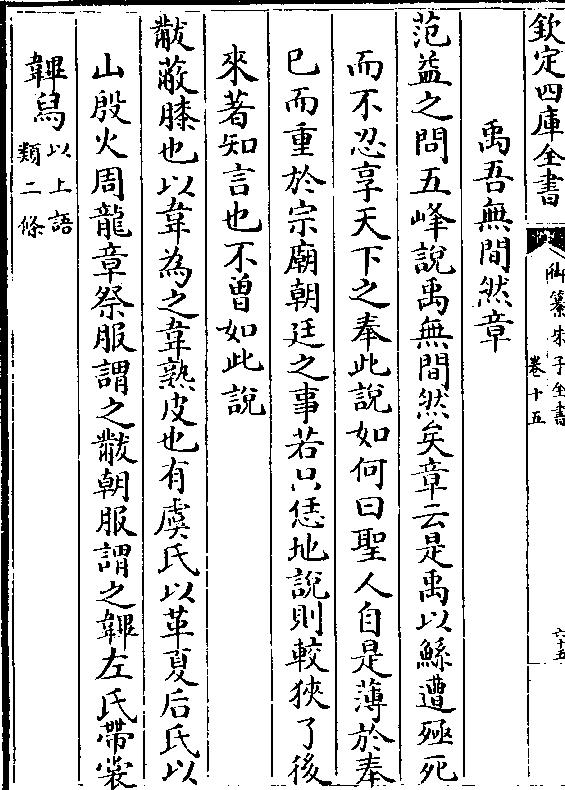 欽定四庫全書
御纂朱子全書
卷十五
六十五
禹吾無間然章
范益之問五峰說禹無間然矣章云是禹以鯀遭殛死
而不忍享天下之奉此說如何曰聖人自是薄於奉
已而重於宗廟朝廷之事若只恁地說則較狹了後
來著知言也不曾如此說
黻蔽膝也以韋為之韋熟皮也有虞氏以革夏后氏以
山殷火周龍章祭服謂之黻朝服謂之韠左氏帶裳
韠舄以上語
類二條